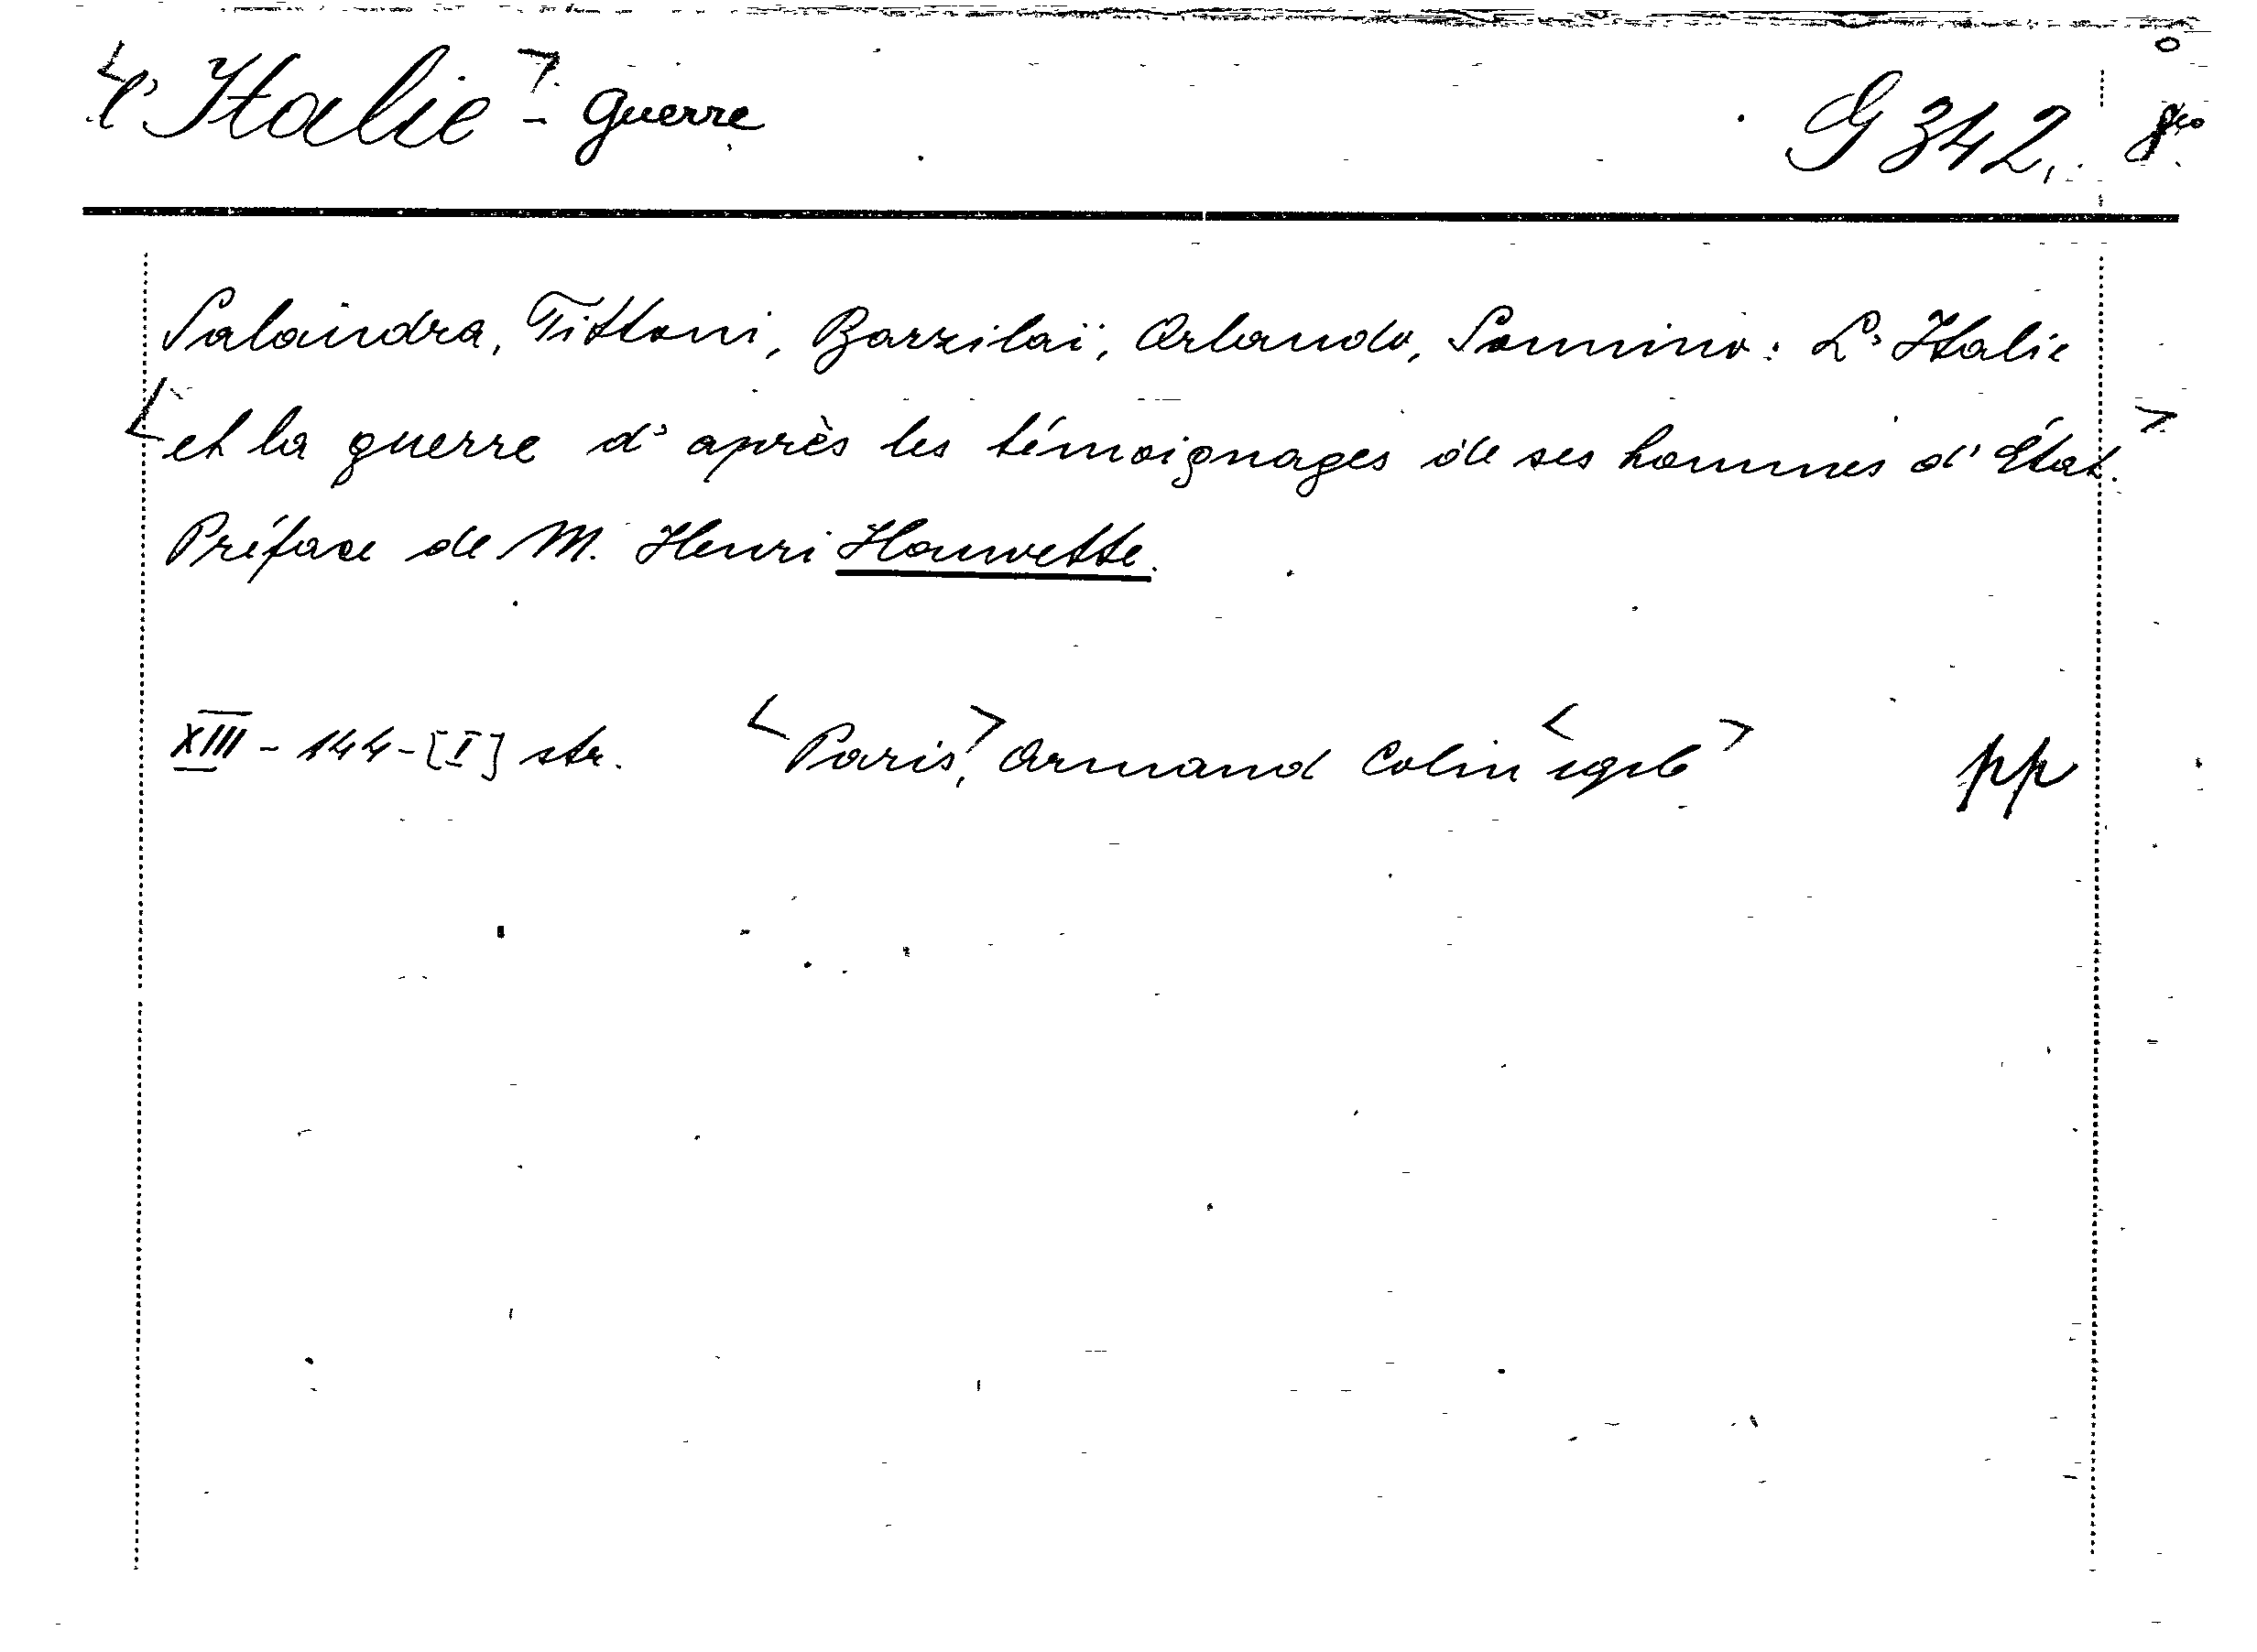 <L'Italie> - guerre G 342. 8°
Salandra, Tittoni, Barzilaï, Orlando, Sonnino: L'Italie
<et la guerre d'après les témoignages de ses hommes d'État.>
Préface de M. Henri Hauvette.
XIII - 144 - [I] str. <Paris>, Armand Colin <1916> pp